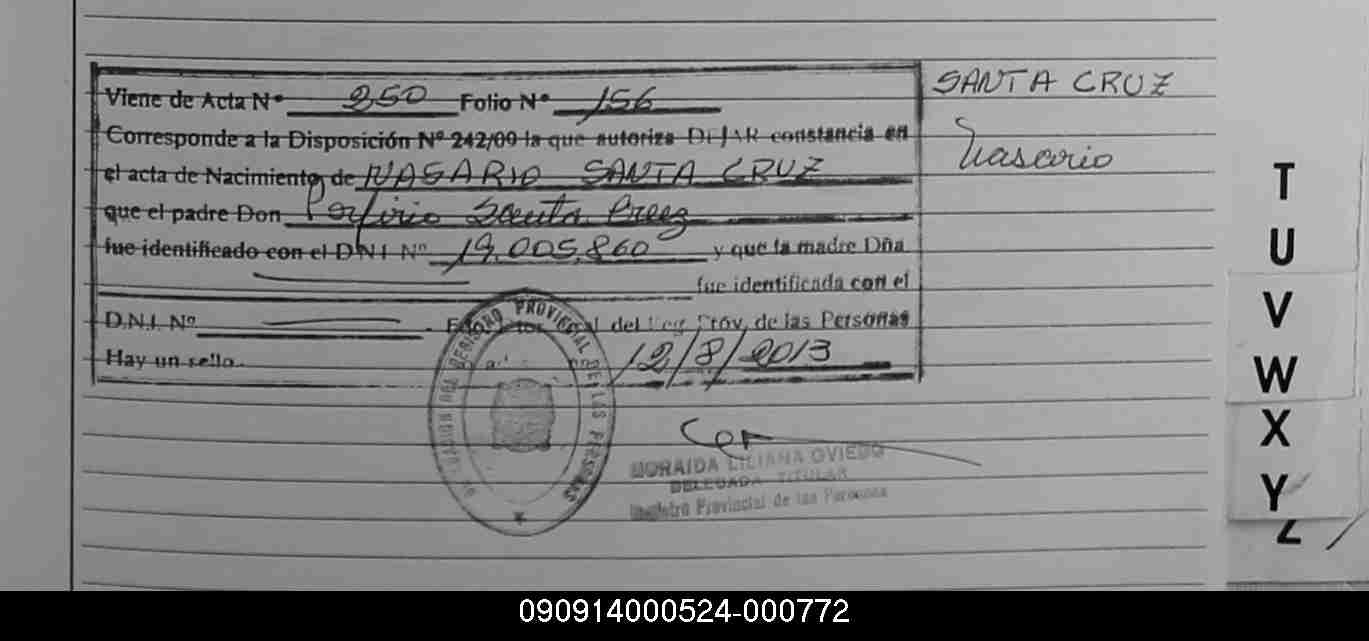 Viene de Acta Nº 250 Folio Nº 156
Corresponde a la Disposición Nº 242/09 la que autoriza DEJAR constancia en
el acta de Nacimiento de NASARIO SANTA CRUZ
que el padre Don Porfirio Santa Cruz
fue identificado con el D.N.I. Nº 19.005.860 y que la madre Dña
fue identificada con el
D.N.I. Nº del Reg. Prov. de las Personas
Hay un sello. 12/8/2013
SANTA CRUZ
Nasario
REGISTRO PROVINCIAL DE LAS PERSONAS
MORAIDA LILIANA OVIEDO
DELEGADA TITULAR
Registro Provincial de las Personas
T
U
V
W
X
Y
Z
090914000524-000772